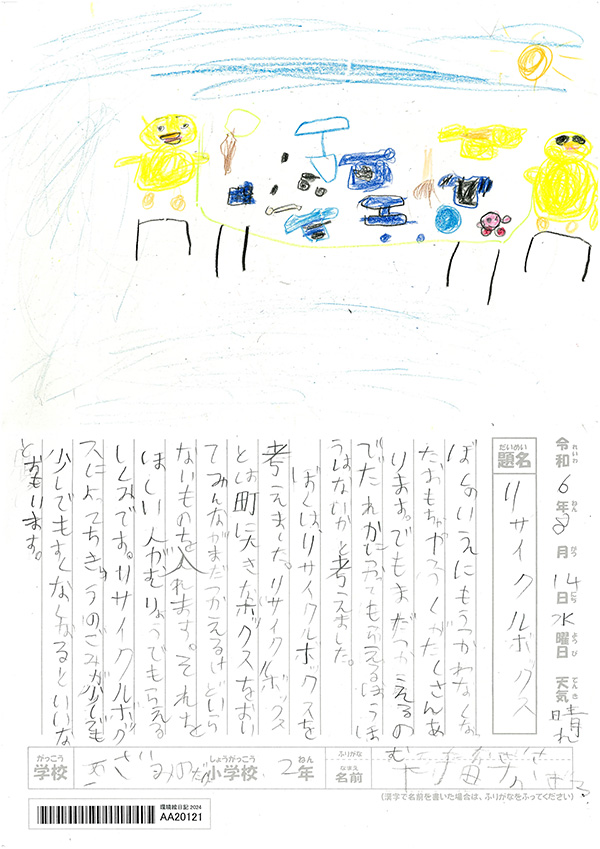 令和6年8月14日水曜日 天気 晴れ
れいわ ねん がつ にち ようび てんき
だいめい
題名 リサイクルボックス
ぼくのいえにもうつかわなくな
ったおもちゃがふくがたくさんあ
ります。でもまだつかえるの
でだれかにつかってもらえるほうほ
うはないかと考えました。
ぼくは、リサイクルボックスを
考えました。リサイクルボックス
とは町に大きなボックスをおい
てみんながまだつかえるけどいら
ないものを入れます。それを
ほしい人がむりょうでもらえる
しくみです。リサイクルボック
スによってちきゅうのごみが少しでも
少しでもすくなくなるといいな
とおもいます。
がっこう
学校
しょうがっこう
小学校 2年
ねん
ふりがな
なまえ
名前
(漢字で名前を書いた場合は、ふりがなをふってください)
環境絵日記 2024
AA20121